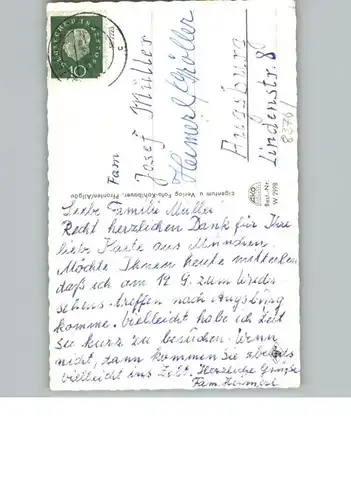 DEUTSCHE BUNDESPOST
10
Fam
Josef Müller
Heimerl/Göller
Augsburg
Lindenstr. 8
8376/
Eigentum u. Verlag Foto-Kohlbauer, Pfronten/Allgäu
Best.-Nr.
W 2998
Liebe Familie Müller
Recht herzlichen Dank für Ihre
liebe Karte aus München.
Möchte Ihnen heute mitteilen
daß ich am 12 9. zum Wieder
sehens-treffen nach Augsburg
komme. Vielleicht habe ich Zeit
Sie kurz zu besuchen. Wenn
nicht, dann kommen Sie abends
vielleicht ins Zelt. Herzliche Grüße
Fam.